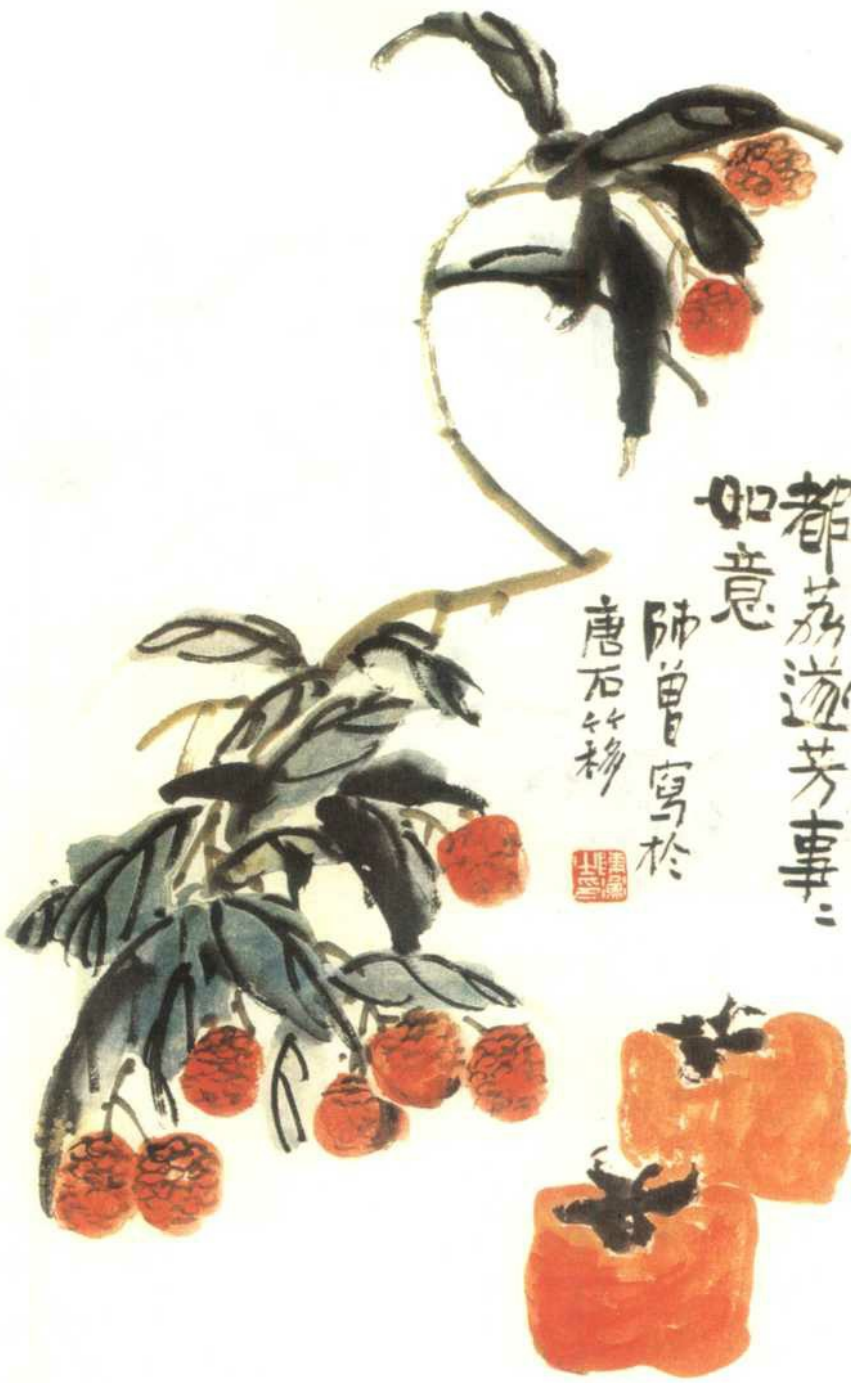 都荔遂芳事〻
如意
師曾寫於
唐石簃